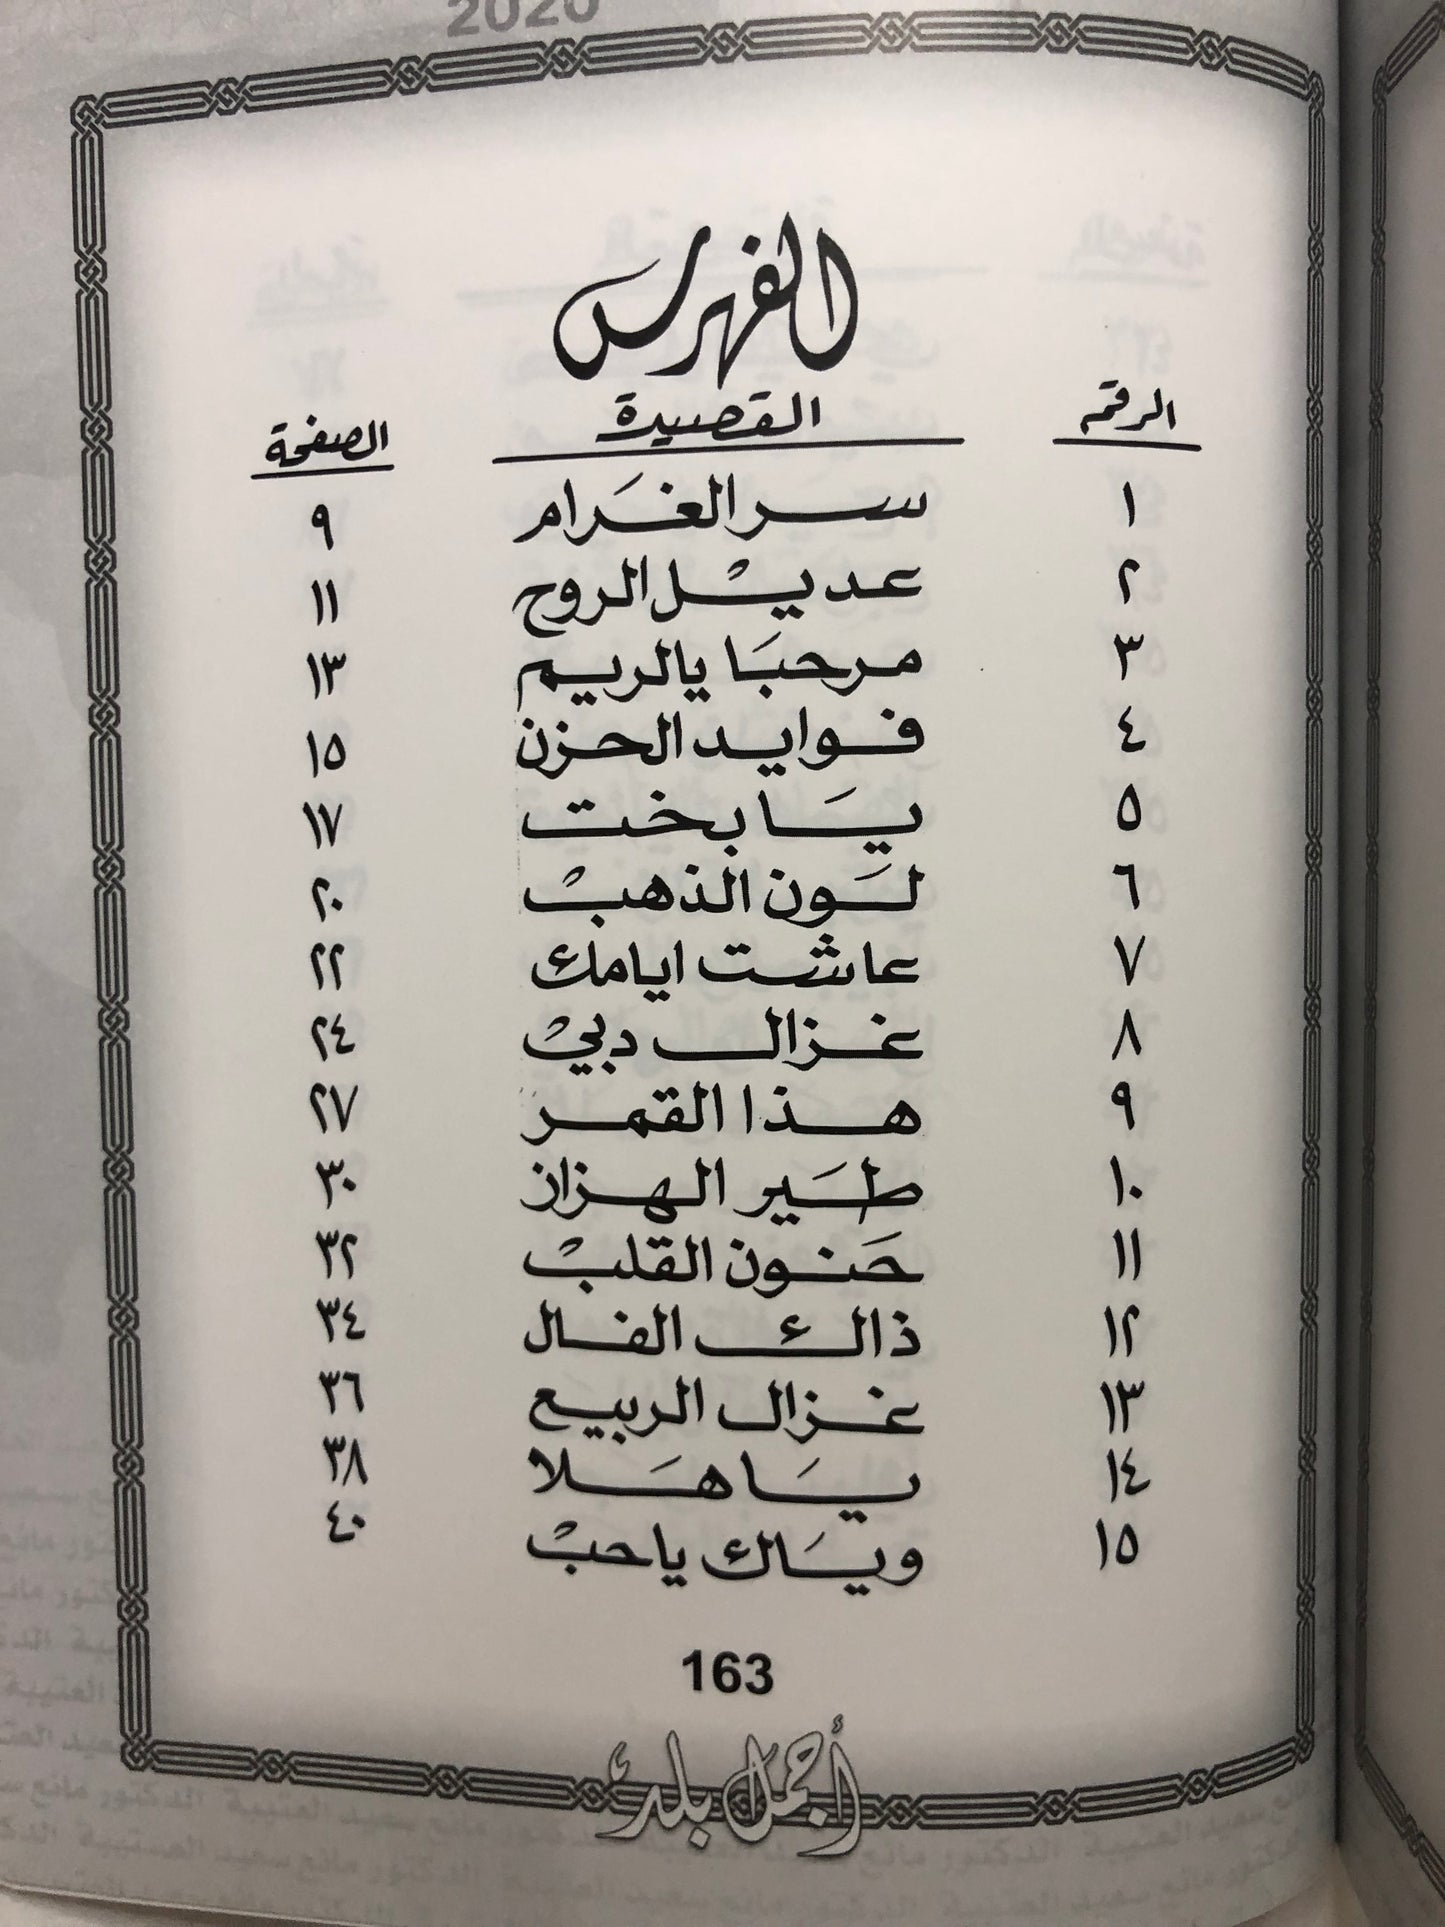 2020
الفهرس
الرقم القصيدة الصفحة
١ سر الغَرام ٩
٢ عديْل الروح ١١
٣ مرحبَا يالريم ١٣
٤ فوايد الحزن ١٥
٥ يَا بخت ١٧
٦ لَون الذهبْ ٢٠
٧ عاشت ايامك ٢٢
٨ غزال دبيْ ٢٤
٩ هذا القمر ٢٧
١٠ طَير الهزان ٣٠
١١ حَنون القلبْ ٣٢
١٢ ذاك الفال ٣٤
١٣ غزال الربيع ٣٦
١٤ يَا هَلا ٣٨
١٥ ويَاك ياحبْ ٤٠
163
أجمل بلد